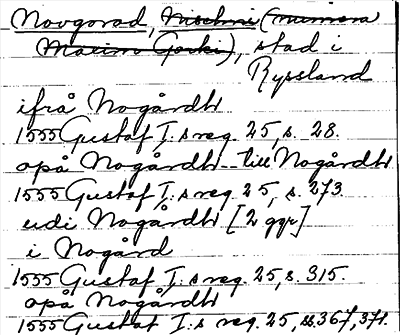 Novgorod, Nischni (numera
Maxim Gorki), stad i
Ryssland
ifrå Nogårdh
1555 Gustaf I:s reg. 25, s. 28.
opå Nogårdh - till Nogårdh
1555 Gustaf I:s reg. 25, s. 273
udi Nogårdh [2 ggr]
i Nogård
1555 Gustaf I:s reg. 25, s. 315.
opå Nogårdh
1555 Gustaf I:s reg. 25, ss. 367, 371.